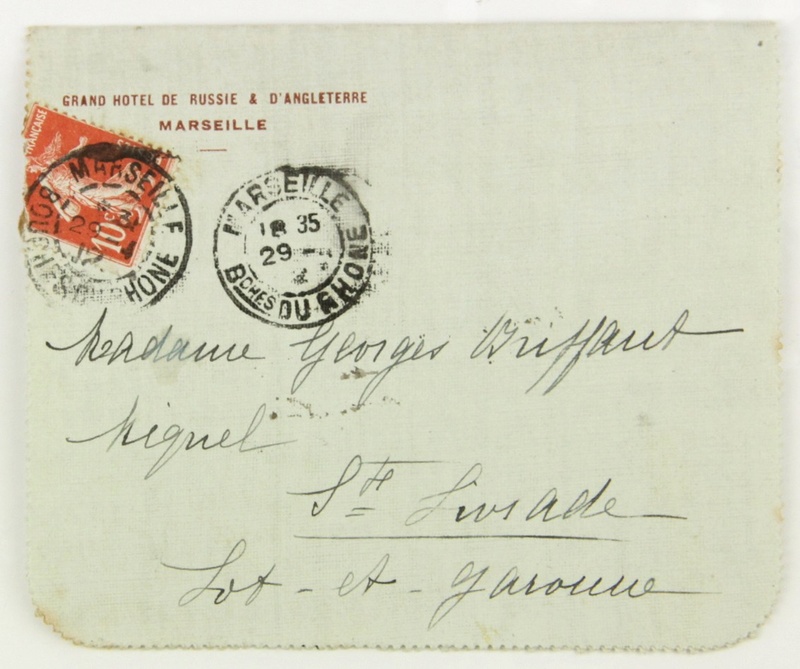 GRAND HOTEL DE RUSSIE & D'ANGLETERRE
MARSEILLE
FRANÇAISE
10c
MARSEILLE
BOUCHES DU RHONE
29
MARSEILLE
18 35
29
BCHES DU RHONE
Madame Georges Briffaut
Miquel
Ste Livrade
Lot-et-Garonne